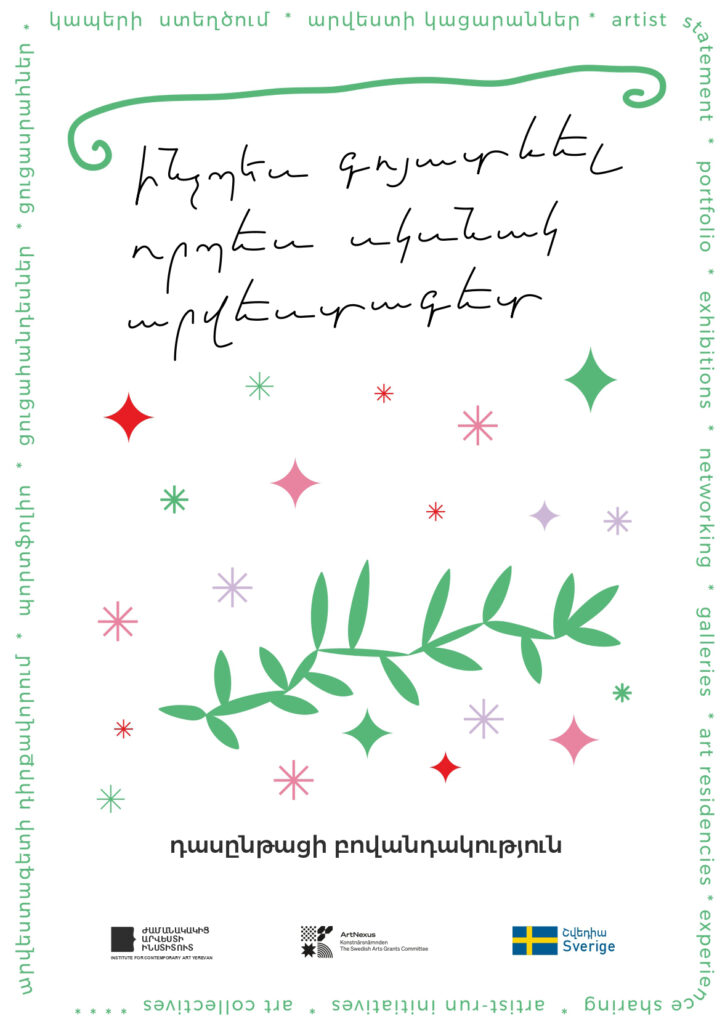 կապերի ստեղծում * արվեստի կացարաններ * artist statement * portfolio * exhibitions * networking * galleries * art residencies * experience sharing * artist-run initiatives * art collectives * * * *
արվեստագետի դիրքավորում * պորտֆոլիո * ցուցահանդեսներ * ցուցասրահներ *
ինչպես գոյատևել
որպես սկսնակ
արվեստագետ
դասընթացի բովանդակություն
ԺԱՄԱՆԱԿԱԿԻՑ
ԱՐՎԵՍՏԻ
ԻՆՍՏԻՏՈՒՏ
INSTITUTE FOR CONTEMPORARY ART YEREVAN
ArtNexus
Konstnärsnämnden
The Swedish Arts Grants Committee
Շվեդիա
Sverige